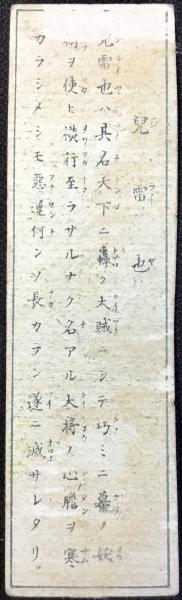 兒雷也
兒雷也ハ其名天下ニ轟ク大賊ニシテ巧ミニ蟇ノ妖
術ヲ使ヒ横行至ラサルナク名アル大将ノ心膽ヲ寒
カラシメシモ悪運何ンゾ長カラン遂ニ滅サレタリ。